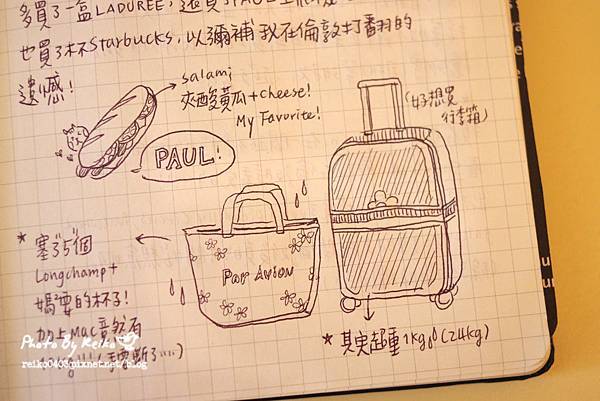 多買了一盒LADURÉE,
也買了杯Starbucks,以彌補我在倫敦打翻的
遺憾!
salami
夾酸黃瓜+cheese!
My Favorite!
PAUL!
(好想買
行李箱)
*塞了5個
Longchamp+
媽要的杯子!
加上Mac竟然有
Par Avion
*其實超重1kg(24kg)
Photo By Reiko
reiko0403.pixnet.net/blog